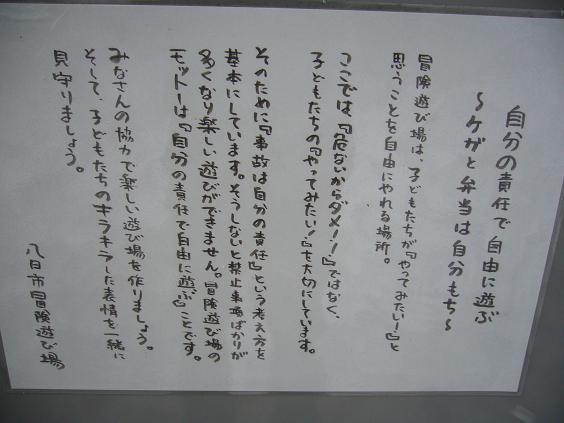 自分の責任で自由に遊ぶ
～ケガと弁当は自分もち～
冒険遊び場は、子どもたちが『やってみたい！』と
思うことを自由にやれる場所。
ここでは『危ないからダメ！』ではなく、
子どもたちの『やってみたい！』を大切にしています。
そのために『事故は自分の責任』という考え方を
基本にしています。そうしないと禁止事項ばかりが
多くなり楽しい遊びができません。冒険遊び場の
モットーは『自分の責任で自由に遊ぶ』ことです。
みなさんの協力で楽しい遊び場を作りましょう。
そして、子どもたちのキラキラした表情を一緒に
見守りましょう。
八日市冒険遊び場